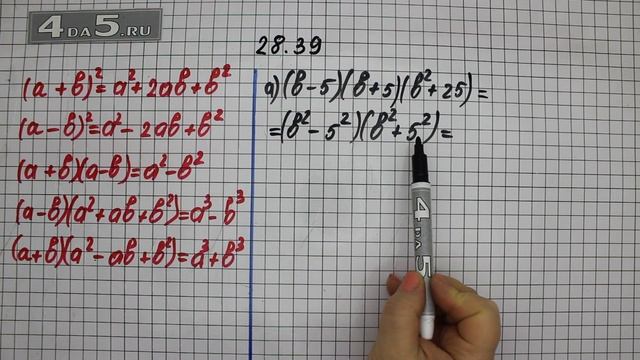 4DA5.RU
28.39
(a+b)²=a²+2ab+b²
(a-b)²=a²-2ab+b²
(a+b)(a-b)=a²-b²
(a-b)(a²+ab+b²)=a³-b³
(a+b)(a²-ab+b²)=a³+b³
а) (b-5)(b+5)(b²+25)=
=(b²-5²)(b²+5²)=
4DA5